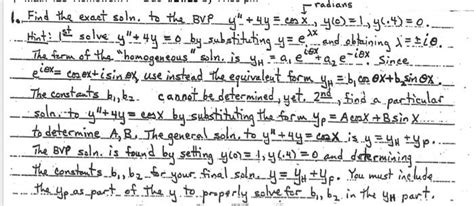 radians
1. Find the exact soln. to the BVP y"+4y = cosx, y(0)=1, y(.4)=0.
Hint: 1st solve y"+4y = 0 by substituting y = e^λx and obtaining λ = ±iθ.
The form of the "homogeneous" soln. is yH = a1 e^iθx + a2 e^-iθx. Since
e^iθx = cosθx + i sinθx, use instead the equivalent form yH = b1 cosθx + b2 sinθx.
The constants b1, b2 cannot be determined, yet. 2nd, find a particular
soln. to y"+4y = cosx by substituting the form yp = A cosx + B sin x
to determine A, B. The general soln. to y"+4y = cosx is y = yH + yp.
The BVP soln. is found by setting y(0) = 1, y(.4) = 0 and determining
the constants b1, b2 for your final soln. y = yH + yp. You must include
the yp as part of the y to properly solve for b1, b2 in the yH part.